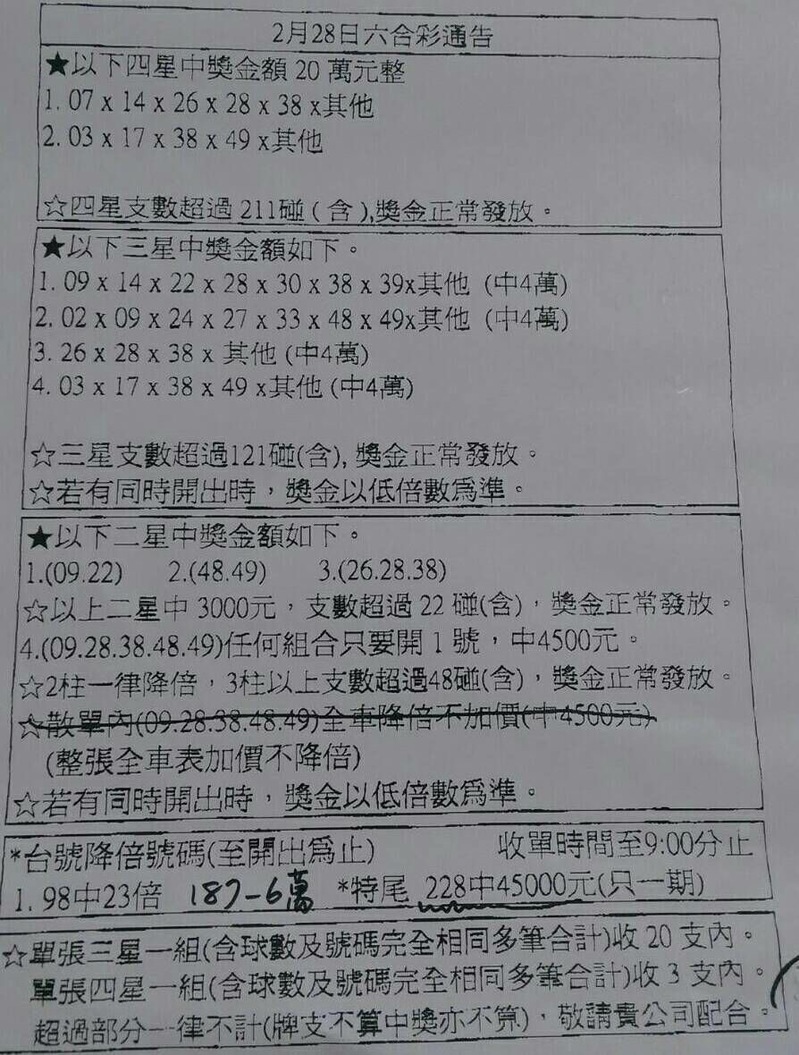 2月28日六合彩通告
★以下四星中獎金額 20 萬元整
1. 07 x 14 x 26 x 28 x 38 x其他
2. 03 x 17 x 38 x 49 x其他
☆四星支數超過 211碰 ( 含 ),獎金正常發放。
★以下三星中獎金額如下。
1. 09 x 14 x 22 x 28 x 30 x 38 x 39x其他 (中4萬)
2. 02 x 09 x 24 x 27 x 33 x 48 x 49x其他 (中4萬)
3. 26 x 28 x 38 x 其他 (中4萬)
4. 03 x 17 x 38 x 49 x其他 (中4萬)
☆三星支數超過121碰(含), 獎金正常發放。
☆若有同時開出時，獎金以低倍數為準。
★以下二星中獎金額如下。
1.(09.22) 2.(48.49) 3.(26.28.38)
☆以上二星中 3000元，支數超過 22 碰(含)，獎金正常發放。
4.(09.28.38.48.49)任何組合只要開 1 號，中4500元。
☆2柱一律降倍，3柱以上支數超過48碰(含)，獎金正常發放。
☆散單內(09.28.38.48.49)全車降倍不加價(中4500元)
(整張全車表加價不降倍)
☆若有同時開出時，獎金以低倍數為準。
*台號降倍號碼(至開出為止) 收單時間至9:00分止
1. 98中23倍 187-6萬 *特尾 228中45000元(只一期)
☆單張三星一組(含球數及號碼完全相同多筆合計)收 20 支內。
單張四星一組(含球數及號碼完全相同多筆合計)收 3 支內。
超過部分一律不計(牌支不算中獎亦不算)，敬請貴公司配合。